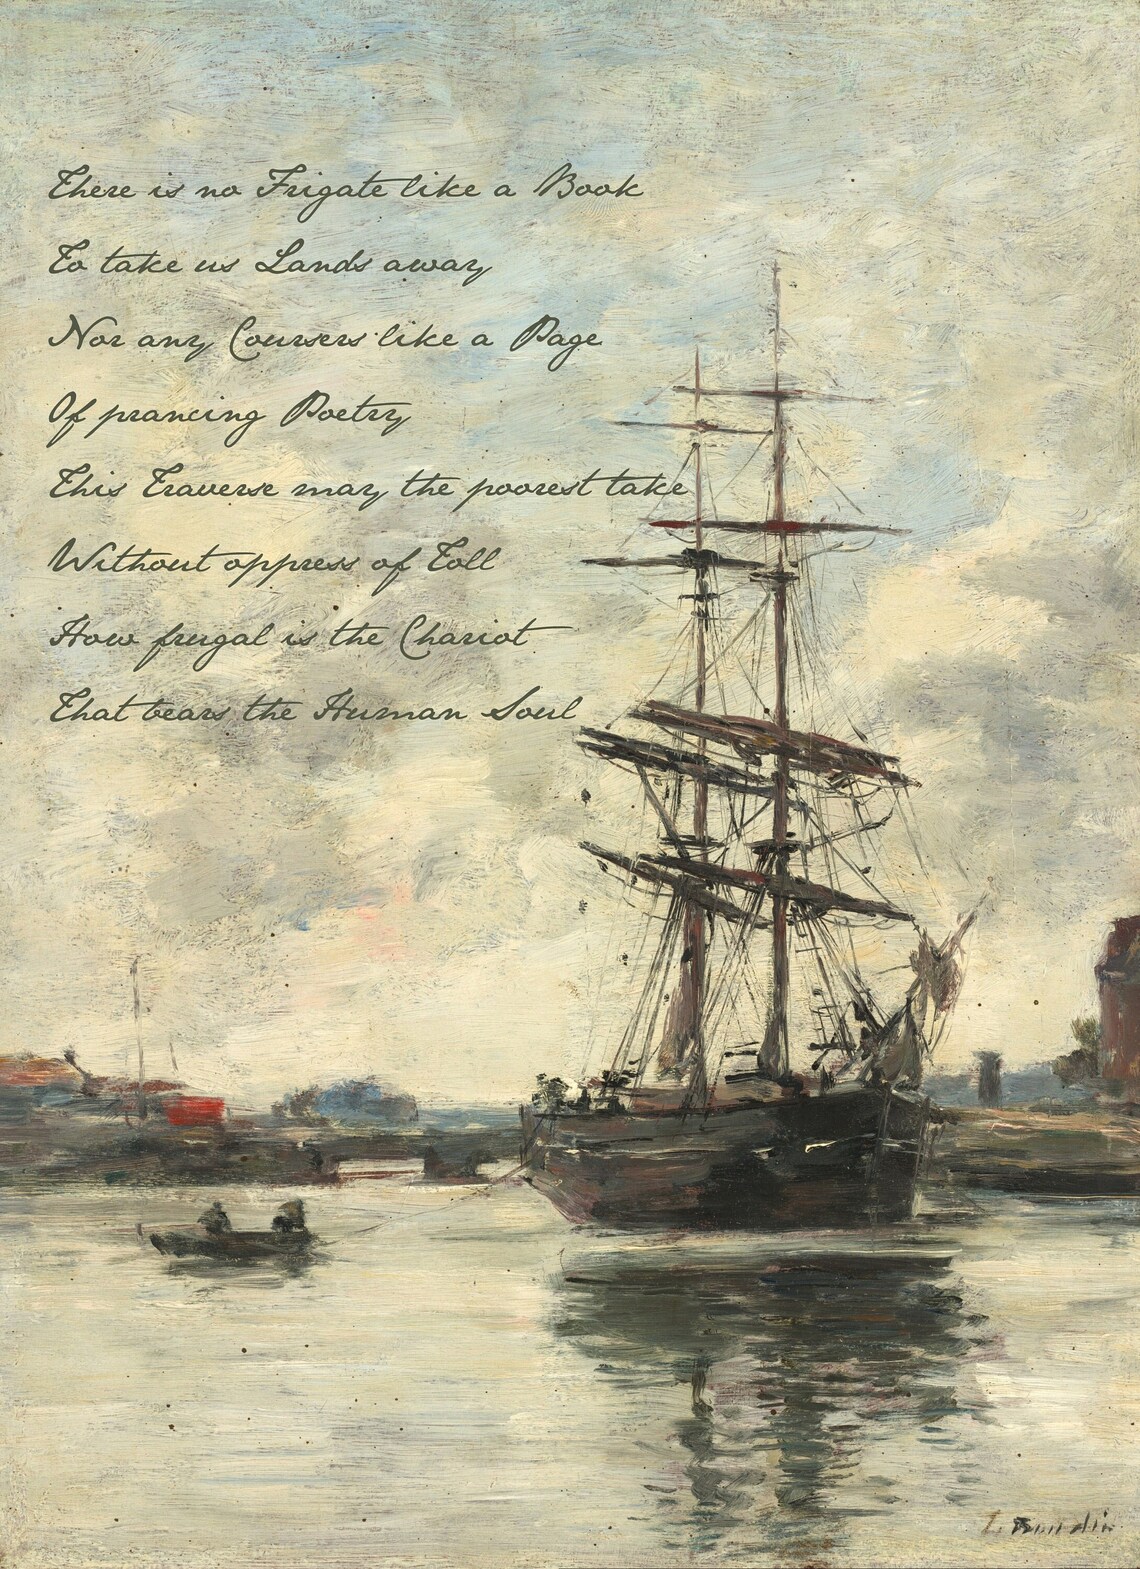 There is no Frigate like a Book
To take us Lands away
Nor any Coursers like a Page
Of prancing Poetry
This Traverse may the poorest take
Without oppress of Toll
How frugal is the Chariot
That bears the Human Soul
E. Boudin